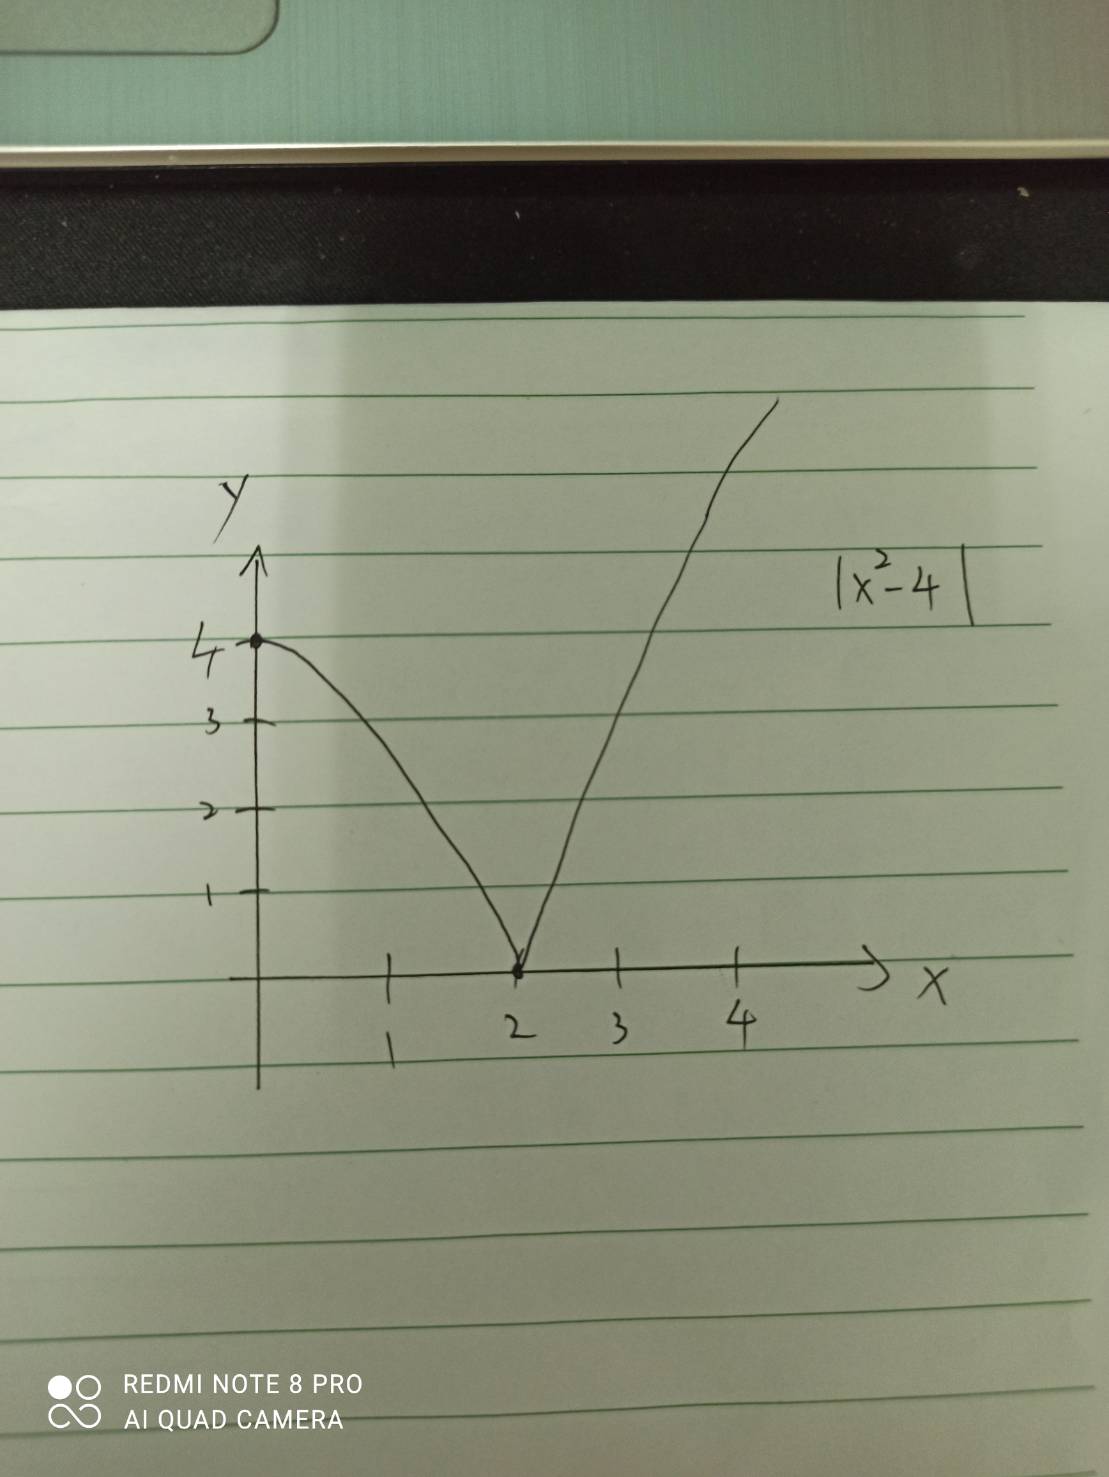 y
|x²-4|
4
3
2
1
x
1 2 3 4
REDMI NOTE 8 PRO
AI QUAD CAMERA